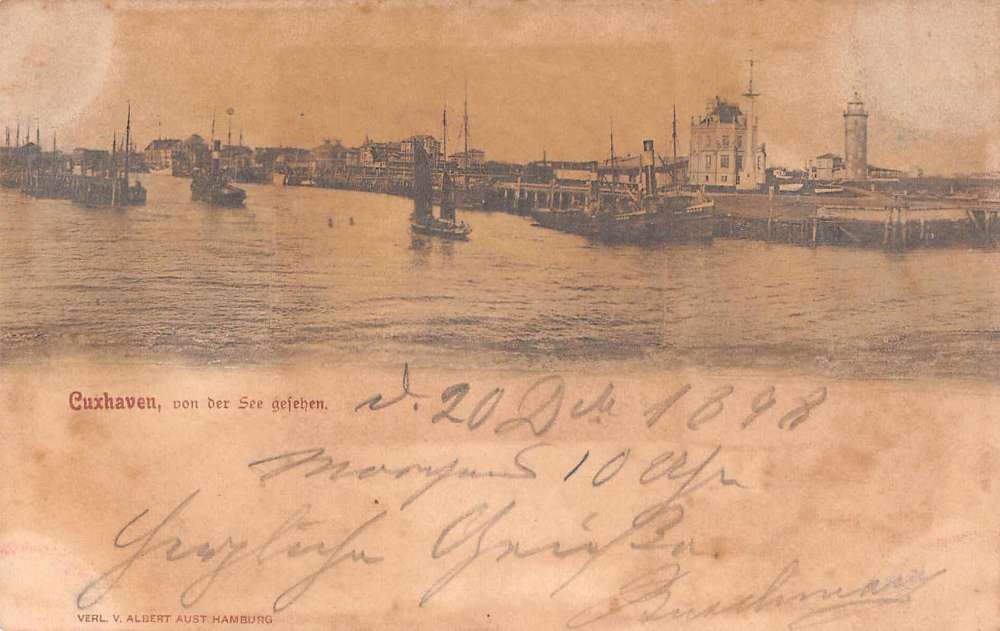 Cuxhaven, von der See gesehen.
d. 20 Dcb 1898
Morgens 10 Uhr
Herzliche Grüße
Buschmann
VERL. V. ALBERT AUST HAMBURG